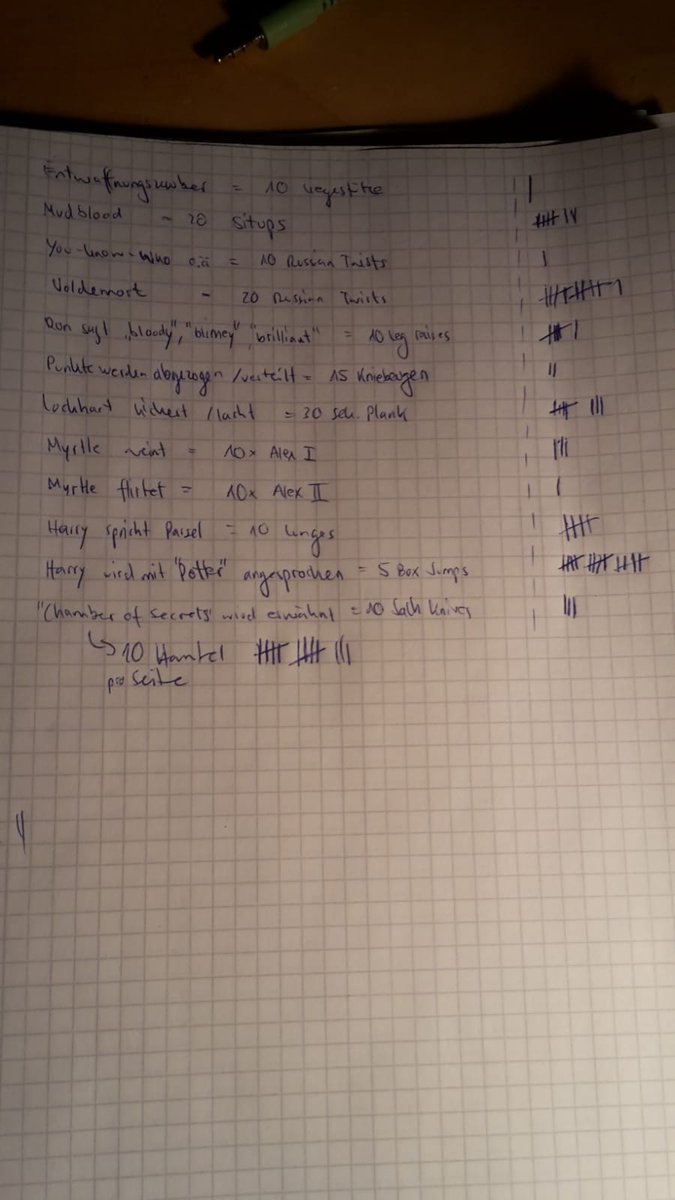 Entwaffnungszauber = 10 Liegestütze
Mudblood - 20 Situps
You-know-who o.ä = 10 Russian Twists
Voldemort - 20 Russian Twists
Ron sagt „bloody", "blimey", "brilliant" = 10 Leg raises
Punkte werden abgezogen / verteilt = 15 Kniebeugen
Lockhart kichert / lacht = 30 Sek. Plank
Myrtle weint = 10x Alex I
Myrtle flirtet = 10x Alex II
Harry spricht Parsel = 10 Lunges
Harry wird mit "Potter" angesprochen = 5 Box Jumps
"Chamber of Secrets" wird erwähnt = 10 Jack Knives
↳ 10 Hantel
pro Seite